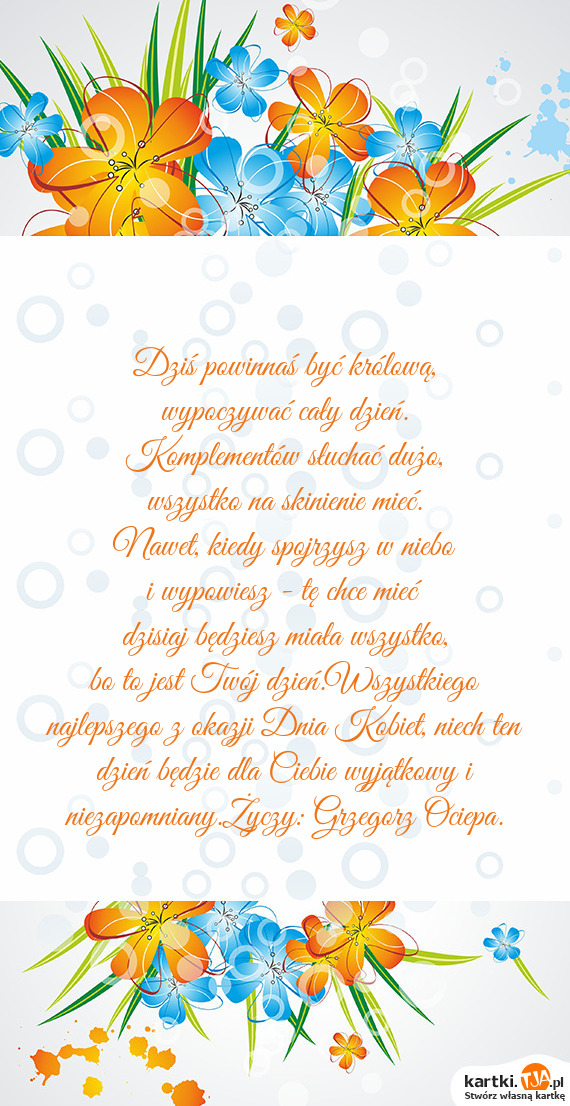 Dziś powinnaś być królową,
wypoczywać cały dzień.
Komplementów słuchać dużo,
wszystko na skinienie mieć.
Nawet, kiedy spojrzysz w niebo
i wypowiesz - tę chce mieć
dzisiaj będziesz miała wszystko,
bo to jest Twój dzień.Wszystkiego
najlepszego z okazji Dnia Kobiet, niech ten
dzień będzie dla Ciebie wyjątkowy i
niezapomniany.Życzy: Grzegorz Ociepa.
kartki.TJA.pl
Stwórz własną kartkę